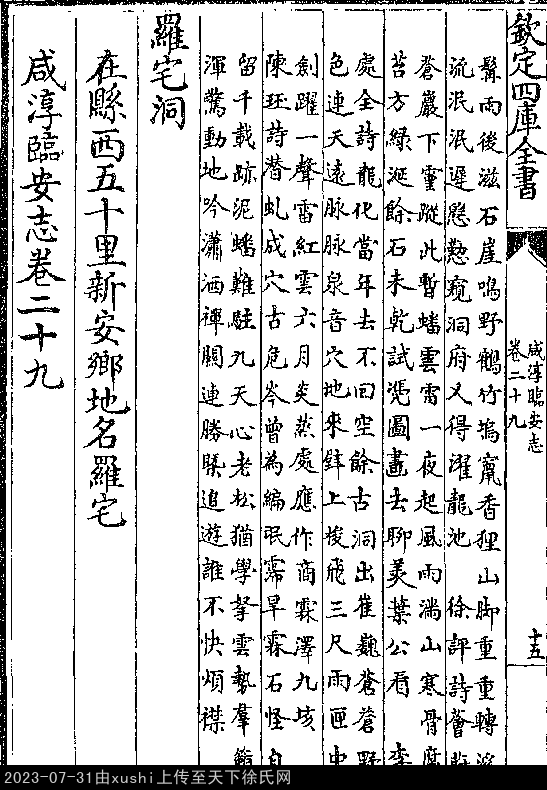 欽定四庫全書
咸淳臨安志
卷二十九
十五
髯雨後滋石崖鳴野鶴竹塢麝香狸山脚重重轉溪
流泯泯遲慇懃窺洞府又得濯龍池　徐評詩薈蔚
蒼巖下靈蹤此暫蟠雲雷一夜起風雨滿山寒骨腐
苔方緑涎餘石未乾試凴圖畫去聊羙葉公看　李
處全詩龍化當年去不回空餘古洞出崔巍蒼蒼野
色連天遠脉脉泉音穴地來鋒上梭飛三尺雨匣中
劍躍一聲雷紅雲六月炎蒸處應作商霖澤九垓
陳珏詩替虬成穴古危岑曽為編氓霈旱霖石怪自
留千載跡泥蟠難駐九天心老松猶學拏雲勢羣籟
渾驚動地吟瀟洒禪關連勝槩追遊誰不快煩襟
羅宅洞
在縣西五十里新安鄉地名羅宅
咸淳臨安志卷二十九
2023-07-31由xushi上传至天下徐氏网